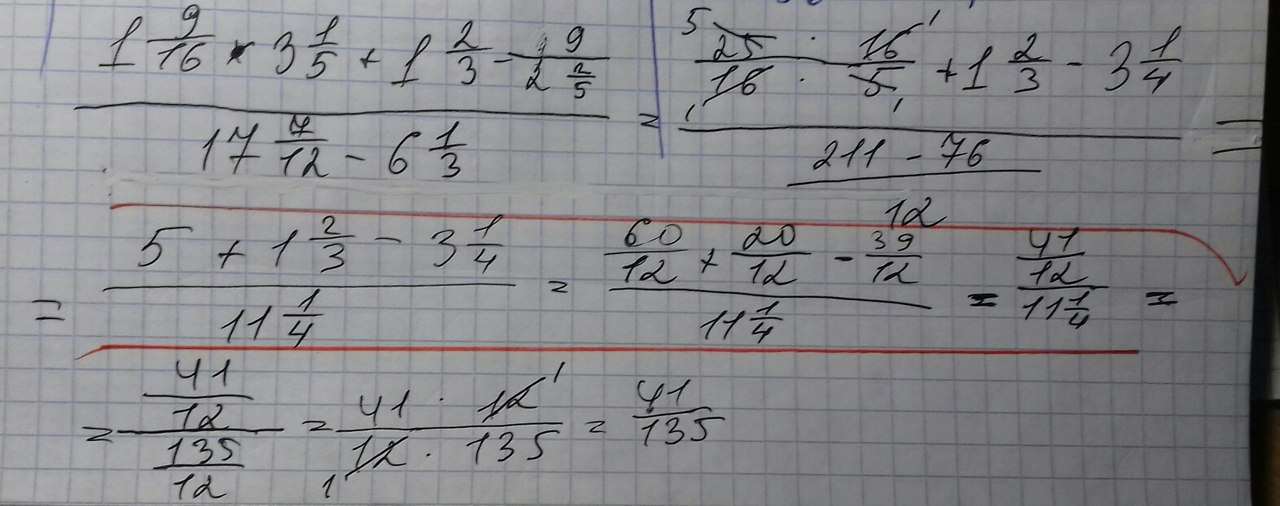 (1 9/16 · 3 1/5 + 1 2/3 - 9/(2 2/5)) / (17 7/12 - 6 1/3) = (25/16 · 16/5 + 1 2/3 - 3 1/4) / ((211 - 76)/12) =
= (5 + 1 2/3 - 3 1/4) / (11 1/4) = (60/12 + 20/12 - 39/12) / (11 1/4) = (41/12) / (11 1/4) =
= (41/12) / (135/12) = (41 · 12) / (12 · 135) = 41/135